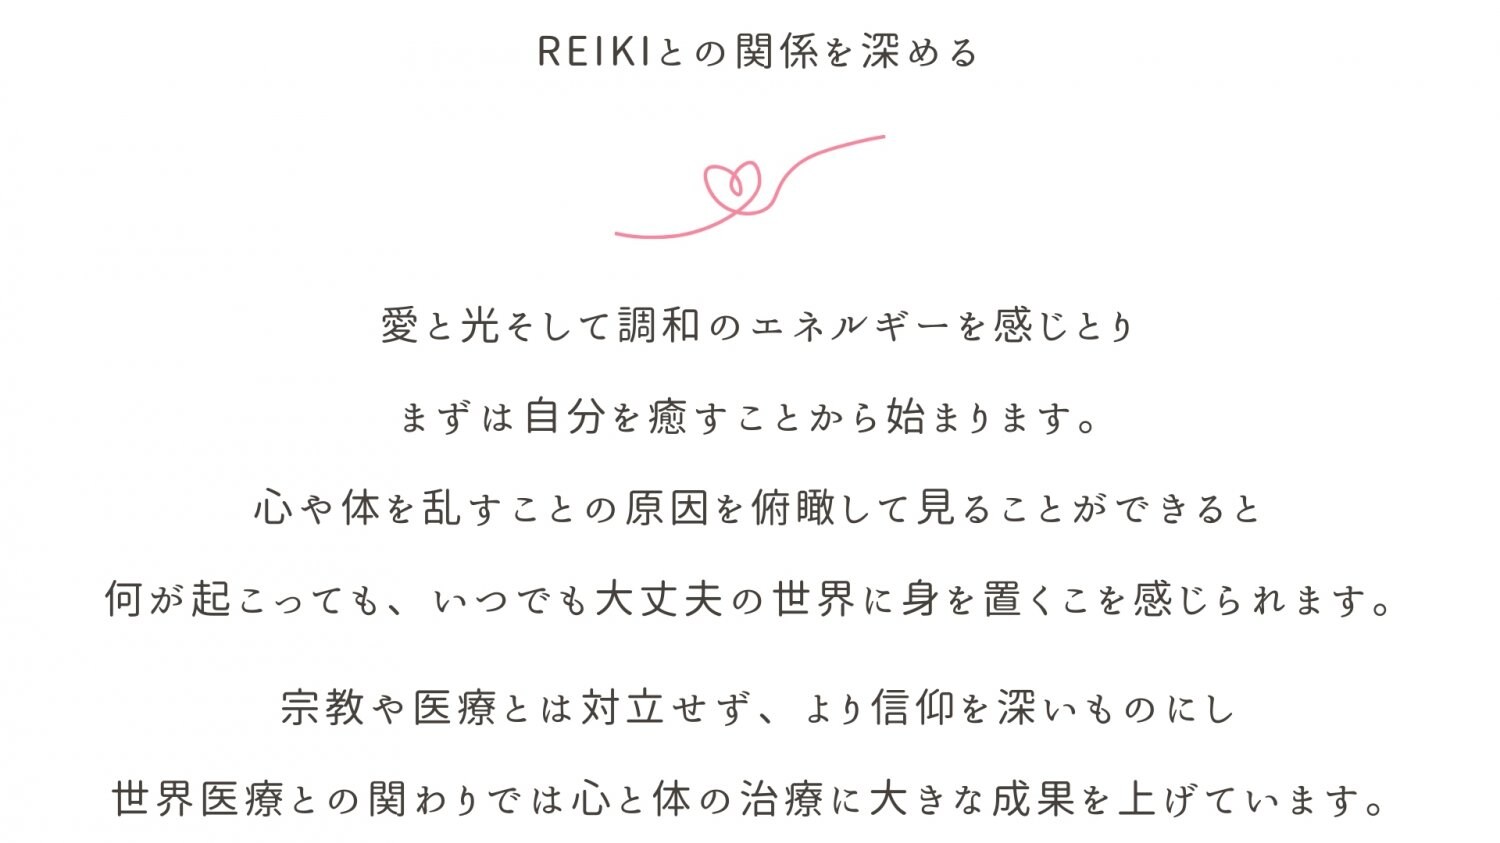 REIKIとの関係を深める
愛と光そして調和のエネルギーを感じとり
まずは自分を癒すことから始まります。
心や体を乱すことの原因を俯瞰して見ることができると
何が起こっても、いつでも大丈夫の世界に身を置くこを感じられます。
宗教や医療とは対立せず、より信仰を深いものにし
世界医療との関わりでは心と体の治療に大きな成果を上げています。